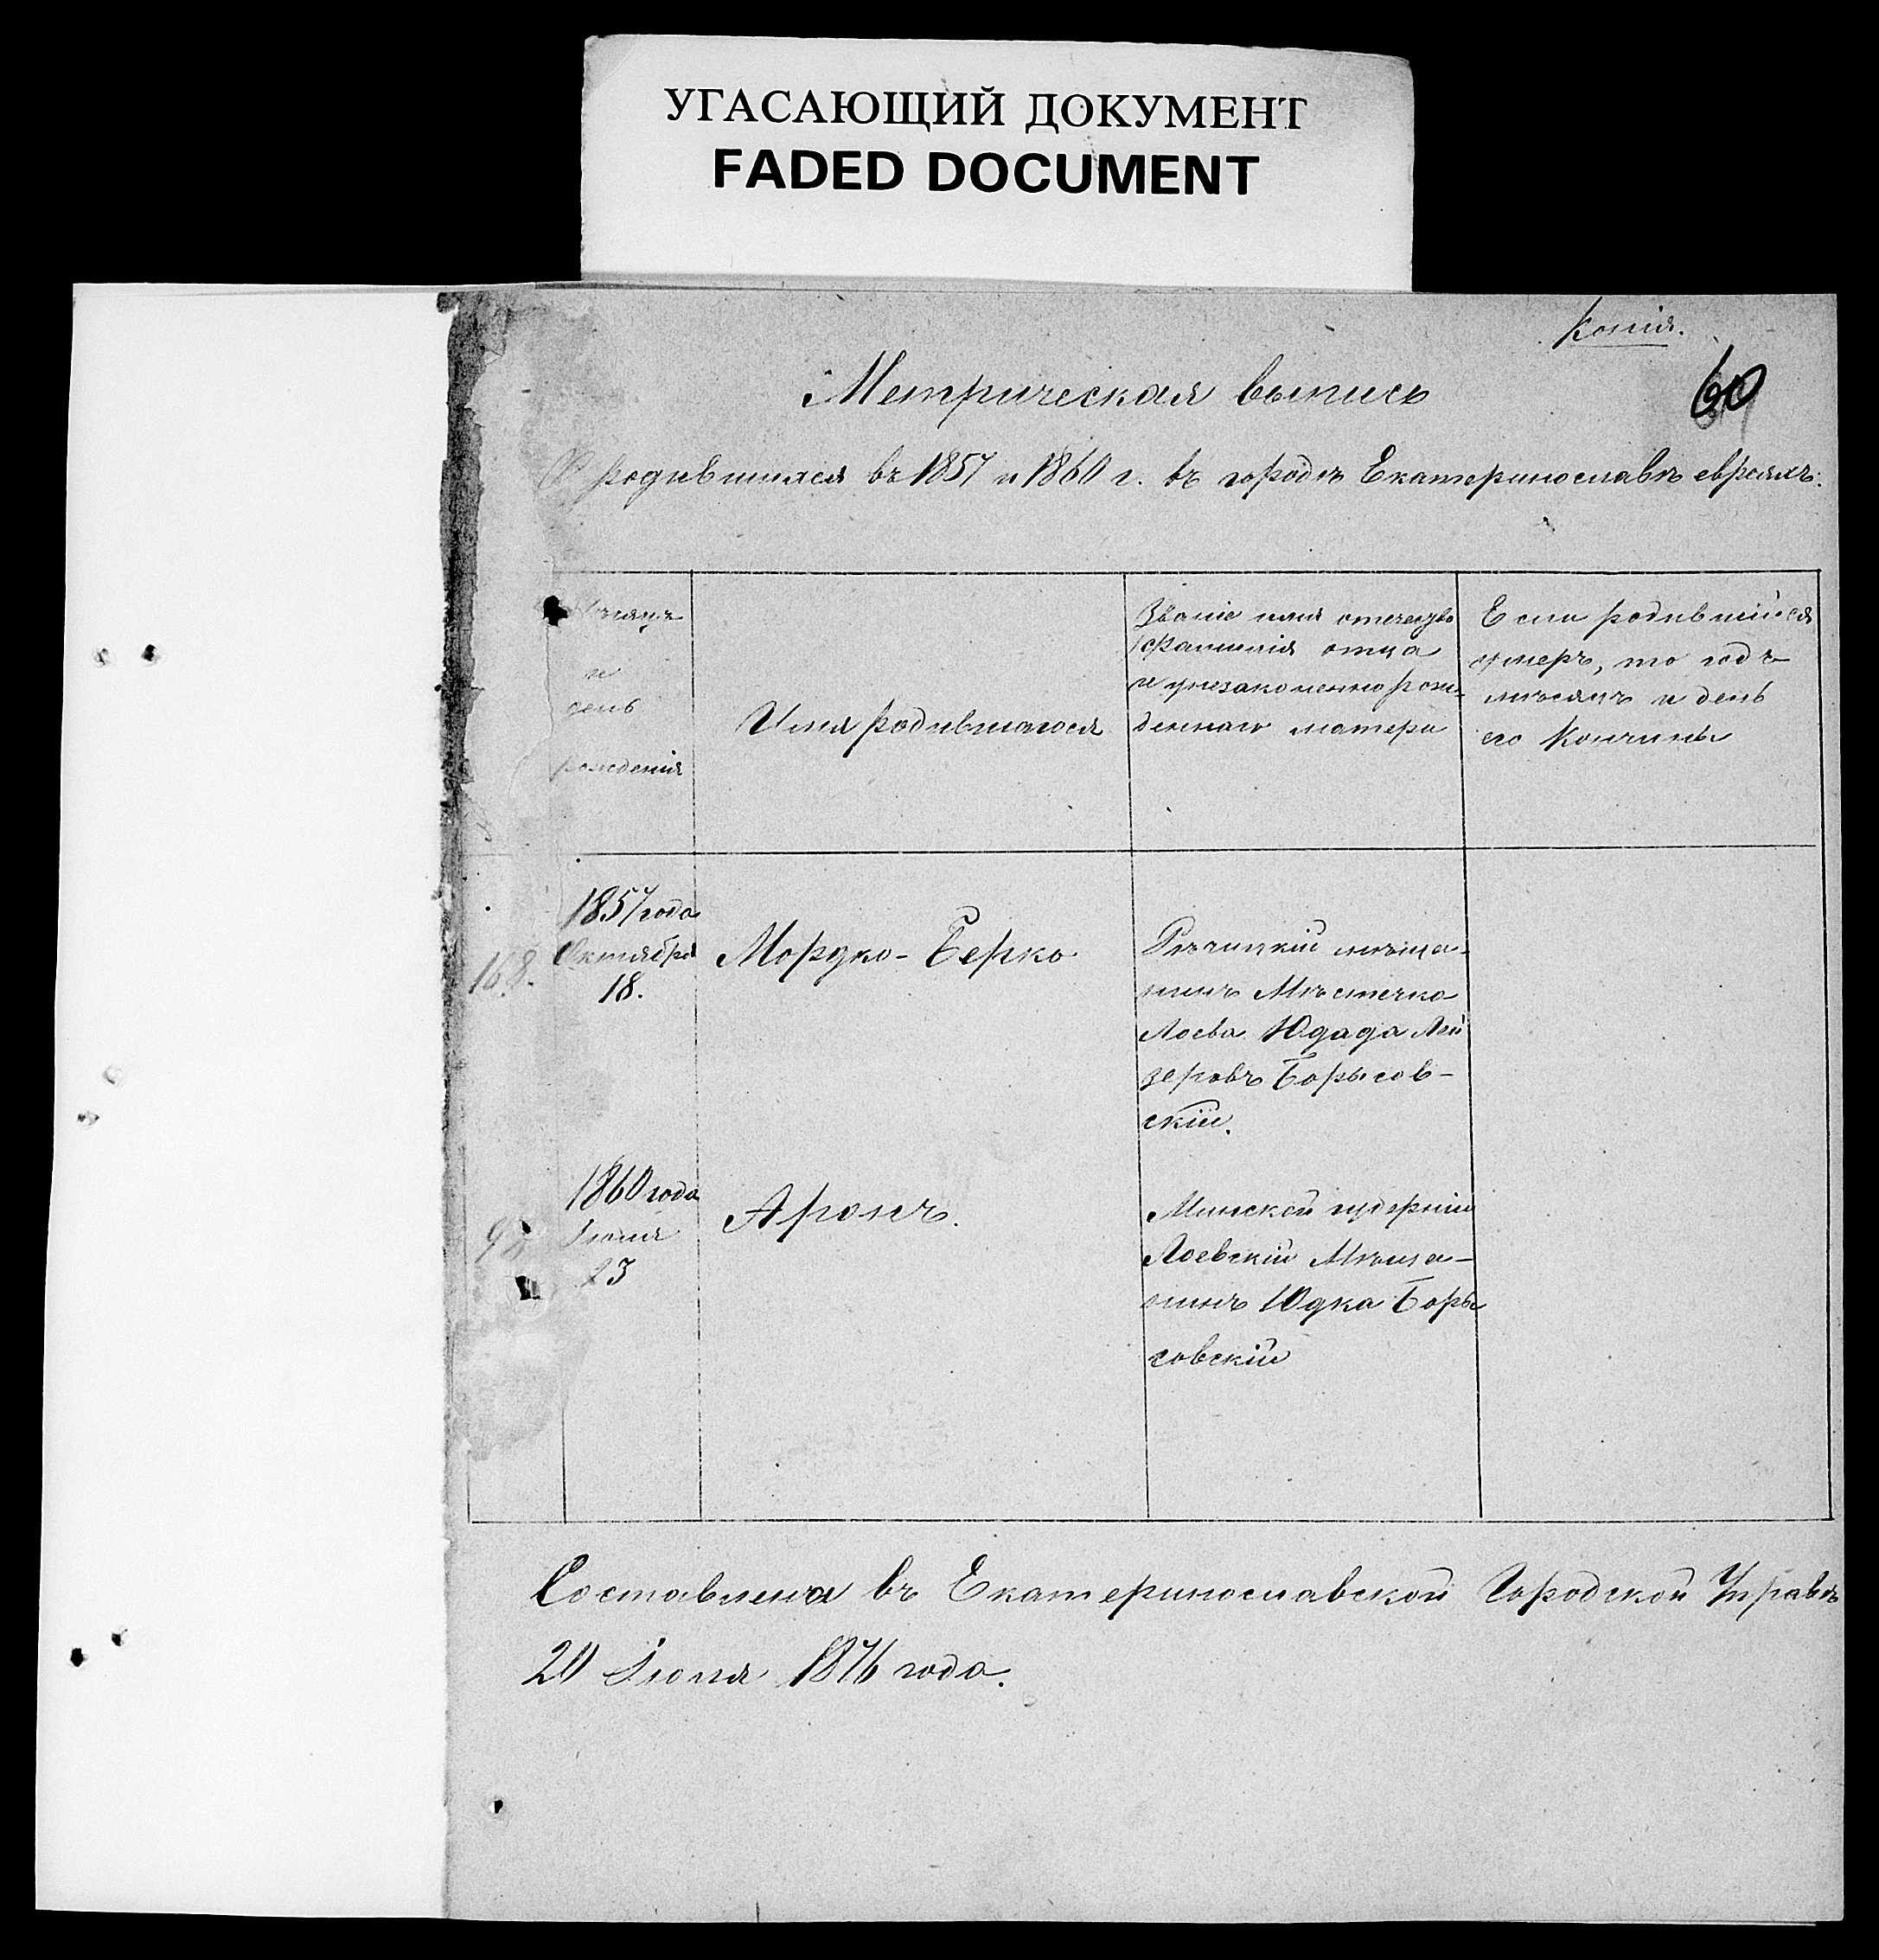 УГАСАЮЩИЙ ДОКУМЕНТ
FADED DOCUMENT
Копія.
60
Метрическая выпись
О родившихся въ 1857 и 1860 г. въ городѣ Екатеринославѣ евреяхъ.
Мѣсяцъ
и
день
рожденія
Имя родившагося
Званіе имя отчество
фамилія отца
и у незаконно рож-
деннаго матери
Если родившійся
умеръ, то годъ
мѣсяцъ и день
его кончины
168.
1857 года
Октября
18.
Мордко-Берко
Рѣчицкій мѣща-
нинъ Мѣстечка
Лоева Юдада Лей
зеровъ Борысов-
скій.
98
1860 года
Іюня
23
Аронъ.
Минской губерніи
Лоевскій Мѣща-
нинъ Юдка Боры
совскій
Составлена въ Екатеринославской Городской Управѣ
20 Іюня 1876 года.